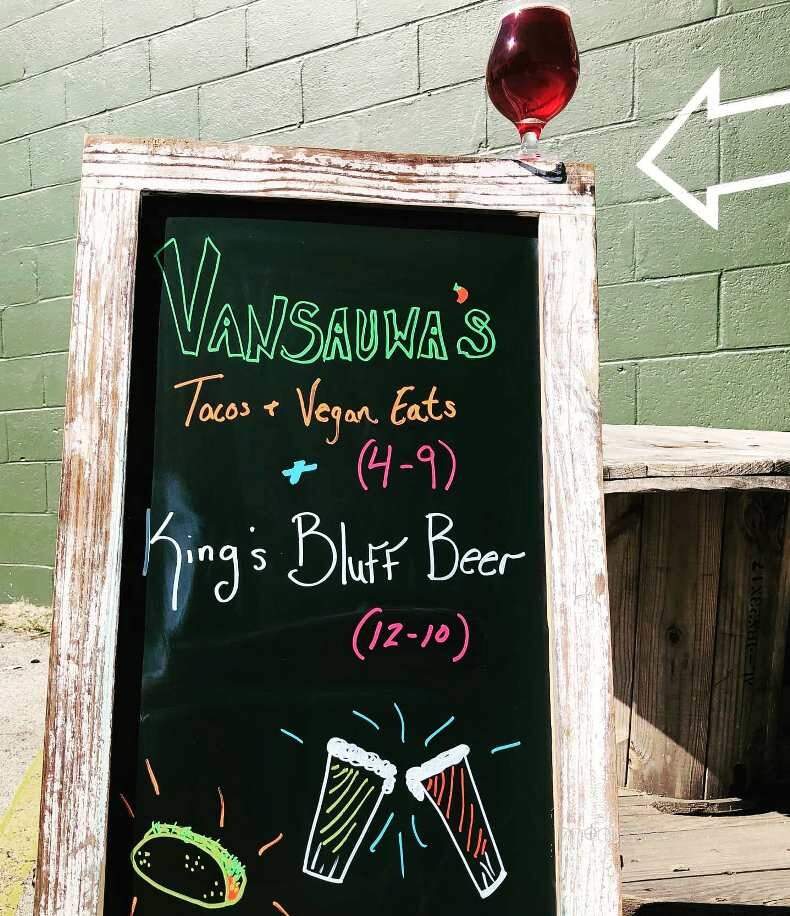 VANSAUWA'S
Tacos + Vegan Eats
+ (4-9)
King's Bluff Beer
(12-10)